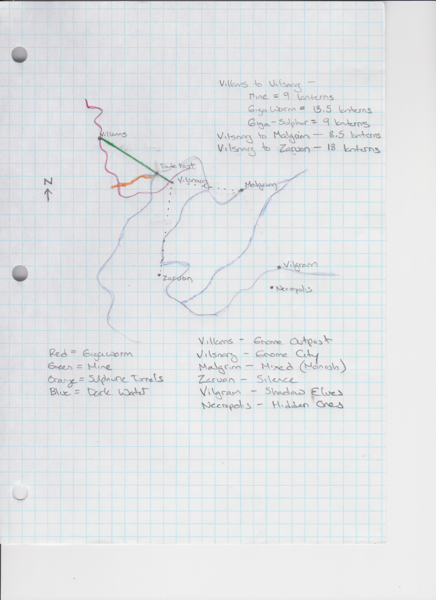 Villams to Vilsnarg -
Mine = 9 lanterns
Giga Worm = 13.5 lanterns
Giga-Sulphur = 9 lanterns
Vilsnarg to Malgrim - 8.5 lanterns
Vilsnarg to Zaruon - 18 lanterns
Villams
Trade Post
Vilsnarg
Malgrim
N
Zaruon
Vilgram
Necropolis
Red = Gigaworm
Green = Mine
Orange = Sulphuric Tunnels
Blue = Dark Water
Villams - Gnome Outpost
Vilsnarg - Gnome City
Malgrim - Mixed (Monash)
Zaruon - Silence
Vilgram - Shadow Elves
Necropolis - Hidden Ones